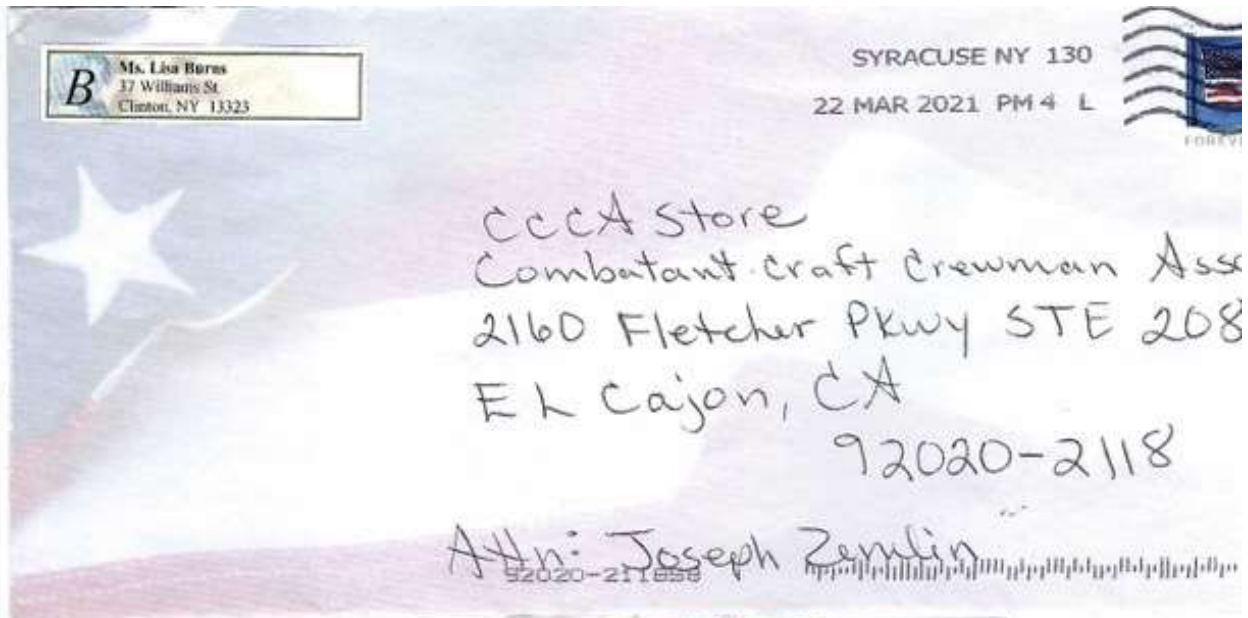 B
Ms. Lisa Burns
37 Williams St
Clinton, NY 13323
SYRACUSE NY 130
22 MAR 2021 PM 4 L
FOREV
CCCA Store
Combatant Craft Crewman Asso
2160 Fletcher PKwy STE 208
EL Cajon, CA
92020-2118
Attn: Joseph Zemlin
92020-211858